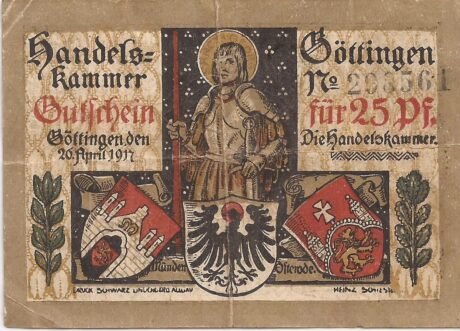 Handels=
kammer
Gutschein
Göttingen den
20. April 1917
Göttingen
No 293561
für 25 Pf.
Die Handelskammer.
Münden
Osterode.
DRUCK SCHWARZ LINDENBERG ALLGÄU
HEINZ SCHIESTL